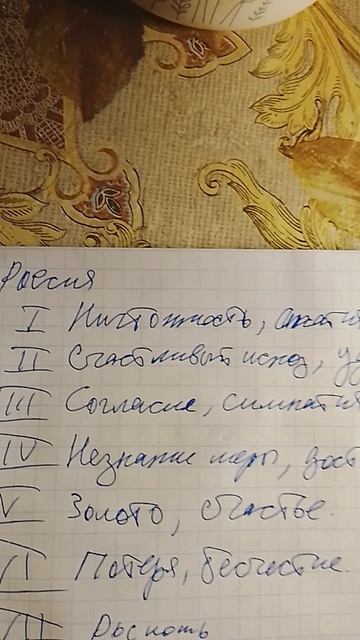 Россия
I Ничтожность,
II Счастливый исход,
III Согласие, симпатия
IV Незнание меры,
V Золото, счастье.
VI Потеря, бесчестие.
VII